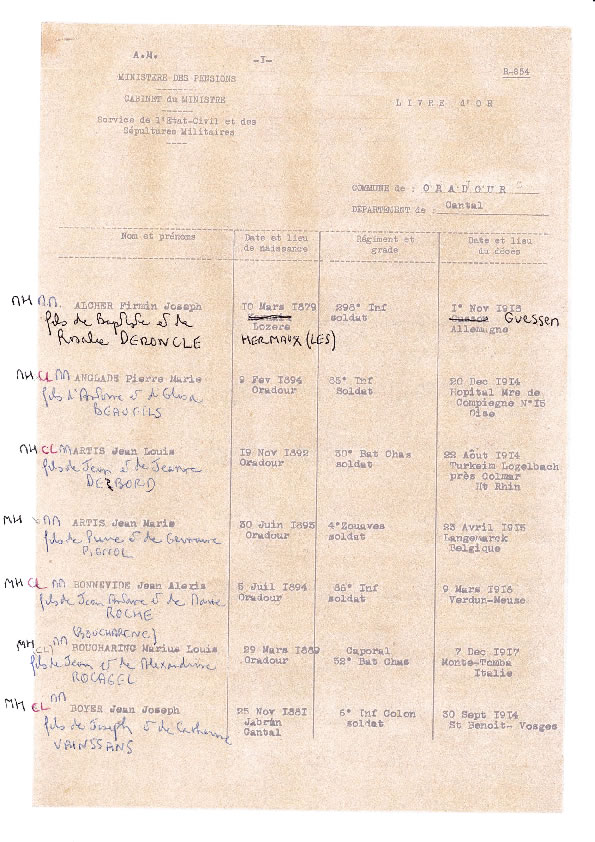 A.M.
-I-
R-854
MINISTERE DES PENSIONS
CABINET du MINISTRE
Service de l'Etat-Civil et des
Sépultures Militaires
LIVRE d'OR
COMMUNE de : ORADOUR
DÉPARTEMENT de : Cantal
Nom et prénoms
Date et lieu
de naissance
Régiment et
grade
Date et lieu
du décès
MH ALCHER Firmin Joseph 10 Mars 1879 298° Inf 1° Nov 1918
fils de Baptiste et de Lozere soldat Allemagne Guessen
Rosalie DERONCLE HERMAUX (LES)
MH CL ANGLADE Pierre Marie 9 Fev 1894 85° Inf 20 Dec 1914
fils d'Antoine et d'Elisa Oradour Soldat Hopital Mre de
BEAUFILS Compiegne N°15
Oise
MH CL ARTIS Jean Louis 19 Nov 1892 30° Bat Chas 22 Août 1914
fils de Jean et de Jeanne Oradour soldat Turkeim Logelbach
DEZBORD près Colmar
Ht Rhin
MH ARTIS Jean Marie 30 Juin 1893 4°Zouaves 23 Avril 1915
fils de Pierre et de Oradour soldat Langemarck
Belgique
MH CL BONNEVIDE Jean Alexis 5 Juil 1894 86° Inf 9 Mars 1916
fils de Jean Antoine et de Marie Oradour soldat Verdun-Meuse
ROCHE
(BOUCHARENC)
MH CL BOUCHARINC Marius Louis 29 Mars 1889 Caporal 7 Dec 1917
fils de Jean et de Alexandrine Oradour 52° Bat Chas Monte-Tomba
ROCAGEL Italie
MH CL BOYER Jean Joseph 25 Nov 1881 6° Inf Colon 30 Sept 1914
fils de Joseph et de Catherine Jabrun soldat St Benoit- Vosges
VAINSSANS Cantal